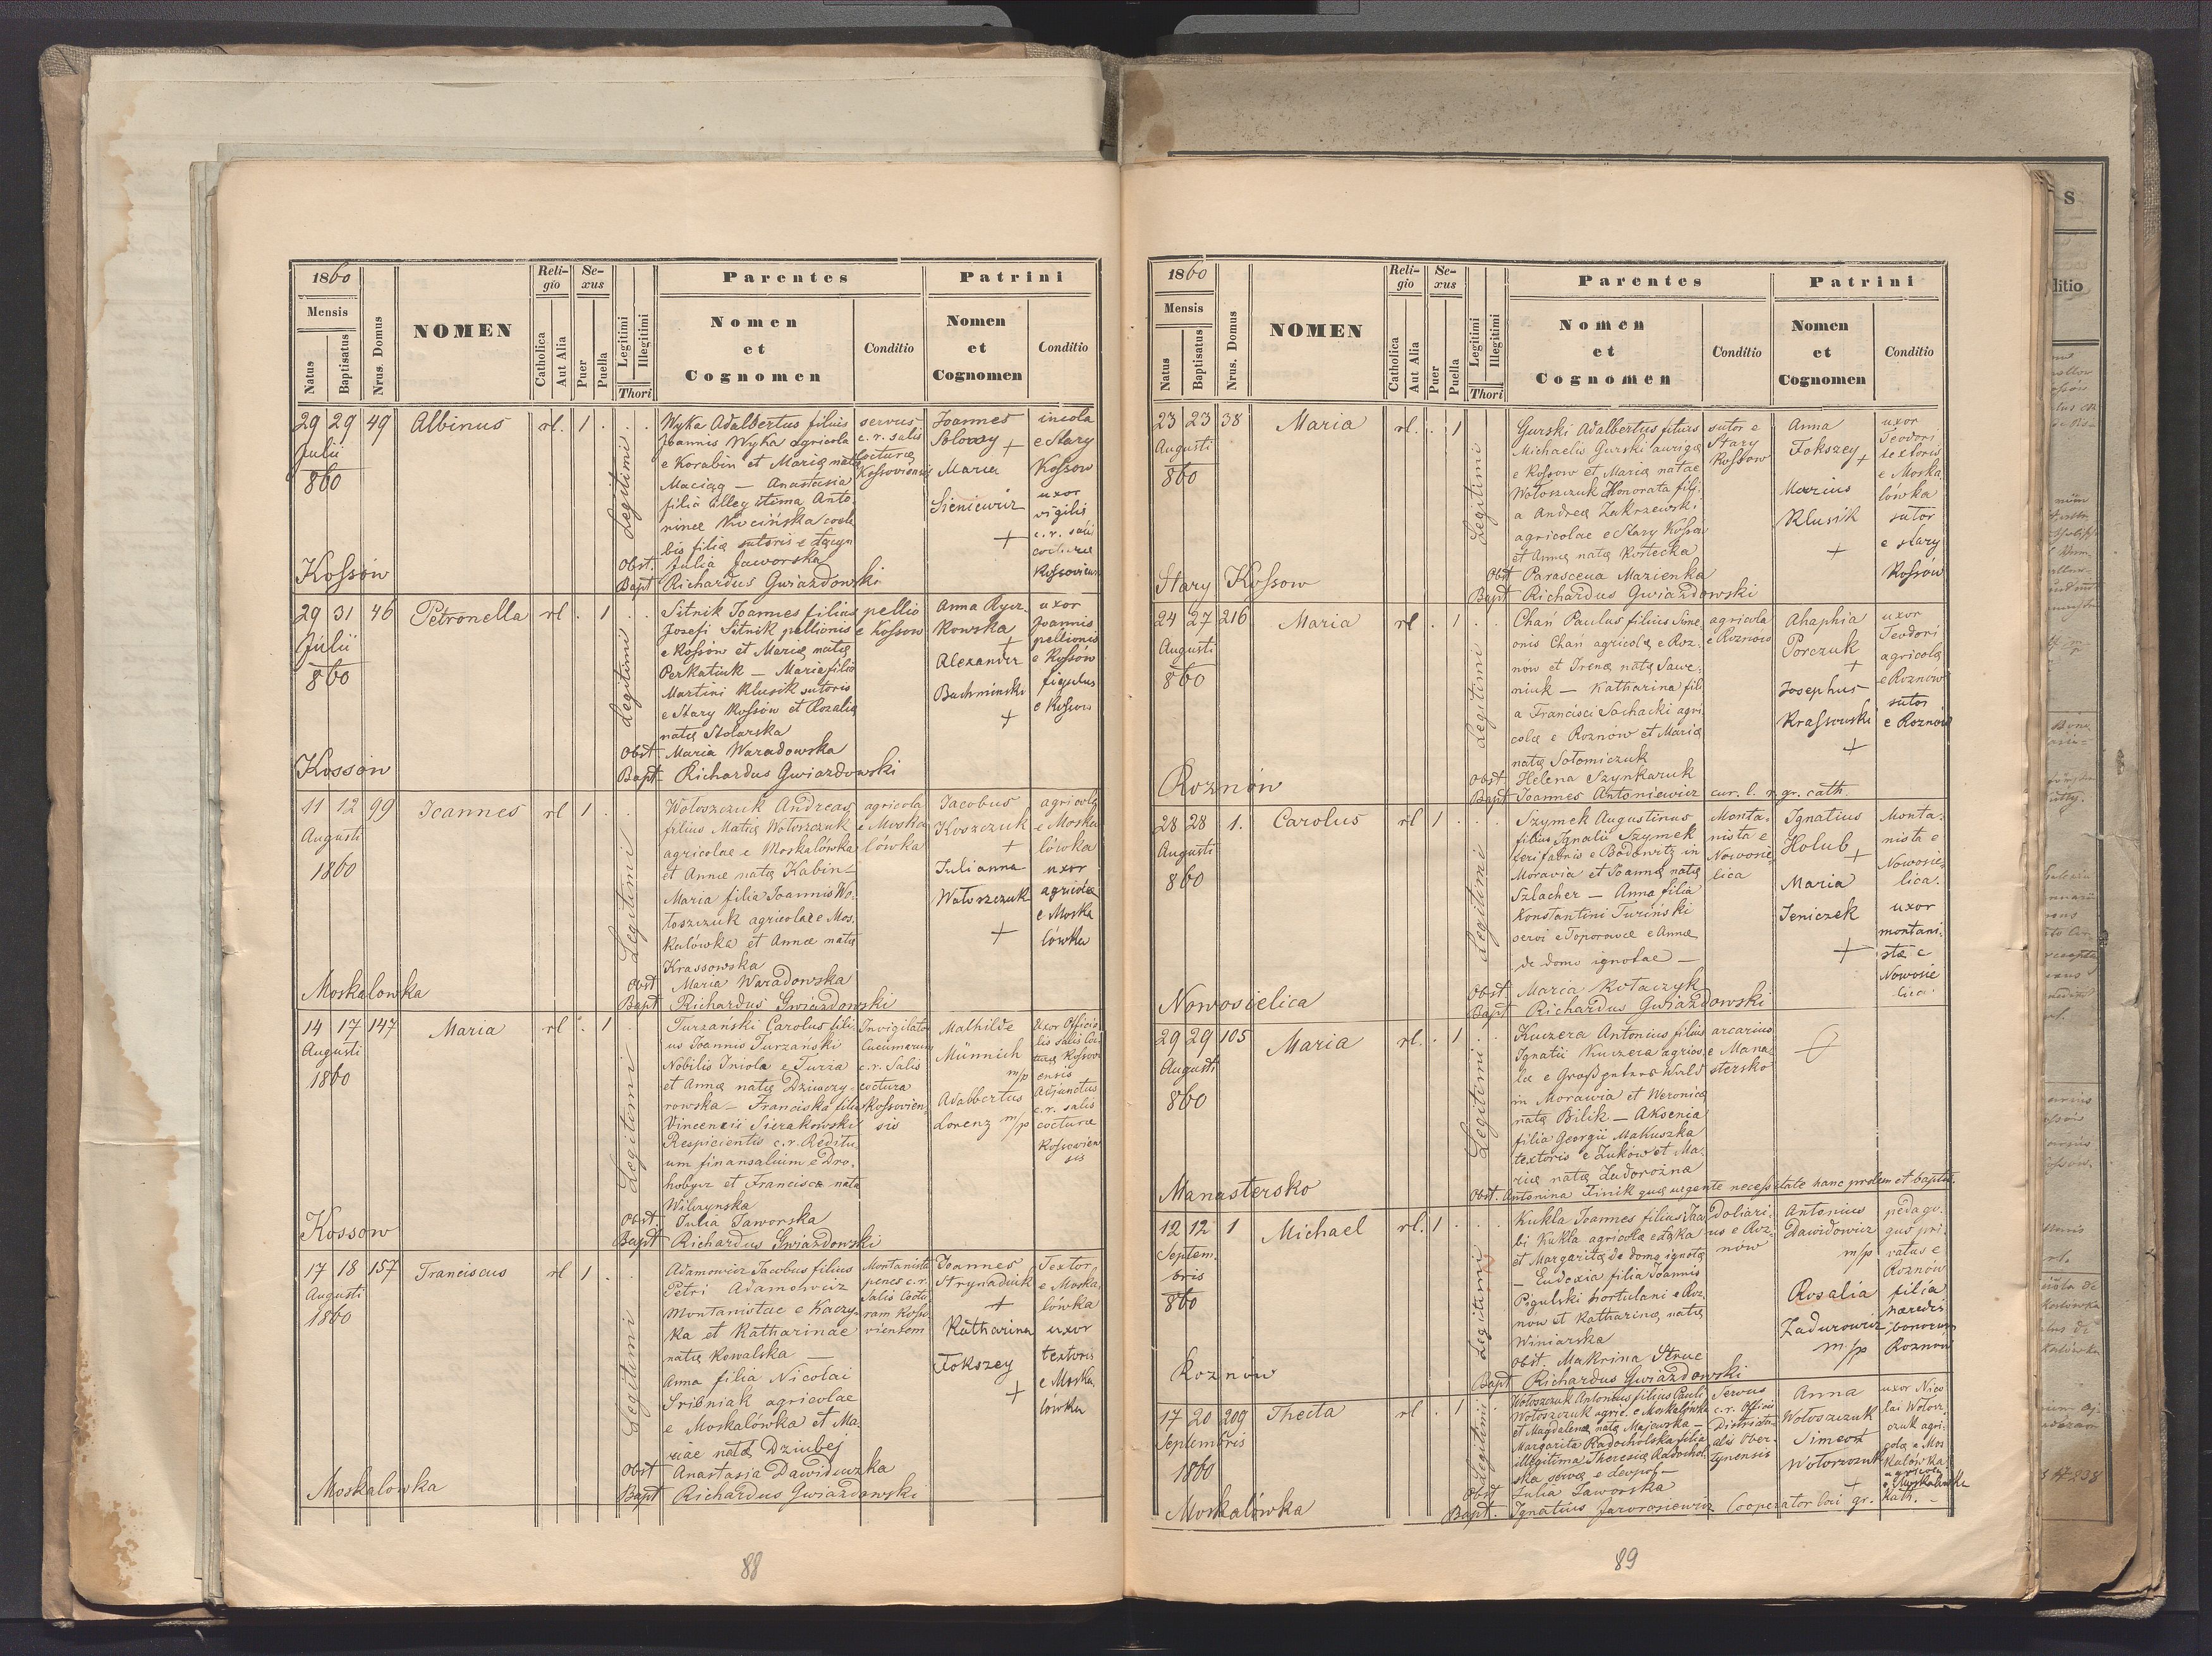 1860
Mensis
Natus
Baptisatus
Nrus. Domus
NOMEN
Reli-
gio
Catholica
Aut Alia
Se-
xus
Puer
Puella
Legitimi
Illegitimi
Thori
Parentes
Nomen
et
Cognomen
Conditio
Patrini
Nomen
et
Cognomen
Conditio
29 29 49 Albinus rl. 1 . .
Julii
860
Kossów
Legitimi
Wyka Adalbertus filius
Joannis Wyka agricola
e Korabin et Mariæ natæ
Maciąg — Anastasia
filia illegitima Anto-
ninæ
bis filiæ sutoris e
Obst. Julia Jaworska
Bapt Richardus Gwiazdowski
servus
c. r. salis
cocturæ
Kossoviensis
Joannes
Solovoy +
Maria
Sieniewicz
+
incola
e Stary
Kossow
uxor
vigilis
c. r. salis
cocturæ
Kossoviens
29 31 46 Petronella rl . 1 .
Julii
860
Kossów
Legitimi
Sitnik Joannes filius
Josefi Sitnik pellionis
e Kossow et Mariæ natæ
Perkatiuk — Maria filia
Martini Klusik sutoris
e Stary Kossów et Rozaliæ
natæ Stolarska
Obst. Maria Waradowska
Bapt Richardus Gwiazdowski
pellio
e Kossow
Anna Rycz-
kowska
+
Alexander
Bachminski
+
uxor
Joannis
pellionis
e Kossów
figulus
e Kossow
11 12 99 Joannes rl 1 .
Augusti
1860
Moskalowka
Legitimi
Wołoszczuk Andreas
filius Matiæ Wołoszczuk
agricolae e Moskalówka
et Annæ natæ Kabin —
Maria filia Joannis Wo-
łoszczuk agricolae e Mos-
kalówka et Annæ natæ
Krassowska
Obst Maria Waradowska
Bapt Richardus Gwiazdowski
agricola
e Moska
lówka
Jacobus
Koszczuk
+
Julianna
Wołoszczuk
+
agricola
e Moska
lówka
uxor
agricolæ
e Moska
lówka
14 17 147 Maria rl . 1 .
Augusti
1860
Kossow
Legitimi
Turzański Carolus fili-
us Joannis Turzański
Nobilis Iniola e Turza
et Annæ natæ Dziwczy-
rowska — Franciska filia
Vincencii Sierakowski
Respicientis c. r. Reditu-
um finansalium e Dro-
hobycz et Franciscæ natæ
Wilczynska
Obst. Julia Jaworska
Bapt Richardus Gwiazdowski
Invigilator
Cucumarum
c. r. Salis
coctura
Kossovien-
sis
Mathilde
Münnich
m/p
Adalbertus
Lorenz m/p
Uxor Officia
lis salis Coc-
turæ Kossovi
ensis
Adjunctus
c. r. salis
cocturæ
Kossovien
sis
17 18 157 Franciscus rl 1 .
Augusti
1860
Moskalowka
Legitimi
Adamowicz Jacobus filius
Petri Adamowicz
Montanistae e Kaczy-
ka et Katharinae
natæ Kowalska —
Anna filia Nicolai
Sribniak agricolae
e Moskalówka et Ma-
riae natæ Dziubej
Obst Anastasia Dawiduczka
Bapt Richardus Gwiazdowski
Montanista
penes c. r.
Salis Coctu
ram Kosso
viensem
Joannes
Strynadiuk
+
Katharina
Fokszey
+
Textor
e Moska
lówka
uxor
textoris
e Moska
lówka
88
1860
Mensis
Natus
Baptisatus
Nrus. Domus
NOMEN
Reli-
gio
Catholica
Aut Alia
Se-
xus
Puer
Puella
Legitimi
Illegitimi
Thori
Parentes
Nomen
et
Cognomen
Conditio
Patrini
Nomen
et
Cognomen
Conditio
23 23 38 Maria rl. . 1
Augusti
860
Stary Kossow
Legitimi
Gurski Adalbertus filius
Michaelis Gurski aurigæ
e Kossow et Mariæ natae
Wołoszczuk Honorata fili-
a Andreæ Zakrzewski
agricolae e Stary Kossow
et Annæ natæ Kostecka
Obst Parascena Mazienka
Bapt Richardus Gwiazdowski
sutor e
Stary
Kossow
Anna
Fokszey +
Marius
Klusik
+
uxor
Teodori
textoris
e Moska
lówka
sutor
e Stary
Kossow
24 27 216 Maria rl . 1 . .
Augusti
860
Roznów
Legitimi
Chań Paulus filius Sime-
onis Chań agricolæ e Roz-
nów et Irenæ natæ Sawc-
niuk — Katharina fili
a Francisci Sachacki agri-
colæ e Roznow et Mariæ
natæ Sołomiczuk
Obst. Helena Szynkaruk
Bapt Joannes Antoniewicz cur. l. r. gr. cath.
agricola
e Roznow
Ahaphia
Porczuk
+
Josephus
Krassowski
+
uxor
Teodori
agricolæ
e Roznow
sutor
e Roznów
28 28 1. Carolus rl 1 . . .
Augusti
860
Nowosielica
Legitimi
Szymek Augustinus
filius Ignatii Szymek
ferifabris e Bodowitz in
Moravia et Joannæ natæ
Szlacher — Anna filia
Konstantini Turiński
servi e Toporowce e Annæ
de domo ignotae —
Obst Maria Kotaczyk
Bapt Richardus Gwiazdowski
Monta-
nista e
Nowosie-
lica
Ignatius
Holub
+
Maria
Jeniczek
+
Monta-
nista e
Nowosie-
lica.
uxor
montani-
stæ e
Nowosie
lica.
29 29 105 Maria rl. . 1 . .
Augusti
860
Manastersko
Legitimi
Kuczera Antonius filius
Ignatii Kuczera agrico-
læ e Großpeters Wald
in Morawia et Weronicæ
natæ Bilik — Aksenia
filia Georgii Makuszka
textoris e Zuków et Ma-
riæ natæ Zadorożna
Obst. Antonina Finik quæ urgente necessitate hanc prolem et baptis.
arcarius
e Mana-
stersko
12 12 1 Michael rl. 1 . . .
Septem-
bris
860
Roznow
Legitimi
Kukla Joannes filius Jaco-
bi Kukla agricolæ e Łąka
et Margaritæ de domo ignotæ
— Eudoxia filia Joannis
Pigulski hortulani e Roz-
nów et Katharinæ natæ
Winiarska
Obst. Makrina Struc
Bapt Richardus Gwiazdowski
Doliari-
us e Roz-
now
Antonius
Dawidowicz
m/p
Rosalia
Zadurowicz
m/p
pedago-
gus pri-
vatus e
Roznów
filia
hæredis
bonorum
Roznow
17 20 209 Thecla rl . 1 . .
Septembris
1860
Moskalówka
Legitimi
Wołoszczuk Antonius filius Pauli
Wołoszczuk agric. e Moskalówka
et Magdalenæ natæ Majewska —
Margarita Radocholska filia
illegitima Theresiæ Radochol-
ska servæ e Leopol —
Obst Julia Jaworska
Bapt. Ignatius Jaworosiewicz Cooperator loci gr. Kath. —
Servus
c. r. Officii
Districtu-
alis Ober-
tynensis
Anna
Wołoszczuk
Simeon
Wołoszczuk
+
uxor Nico
lai Wołosz
czuk agri-
colæ e Mos
kalówka
agricola
e Moskalówka
89